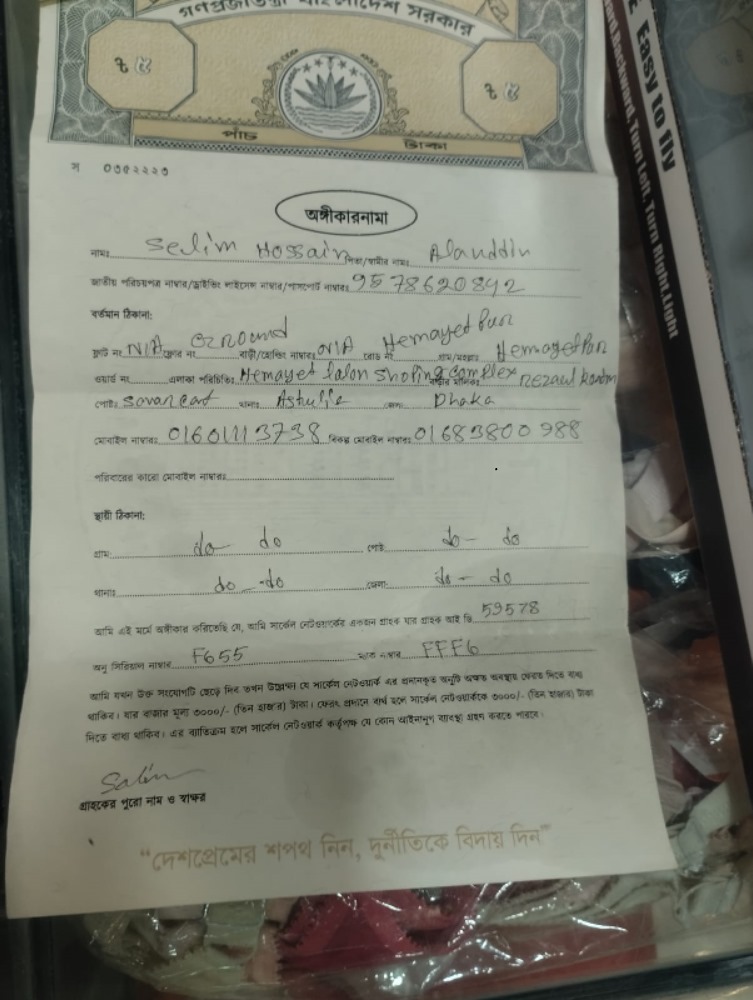 গণপ্রজাতন্ত্রী বাংলাদেশ সরকার
৳ ৫ ৳ ৫
পাঁচ টাকা
স ০৩৫২২২৩
অঙ্গীকারনামা
নামঃ Selim Hossain পিতা/স্বামীর নামঃ Alauddin
জাতীয় পরিচয়পত্র নাম্বার/ড্রাইভিং লাইসেন্স নাম্বার/পাসপোর্ট নাম্বারঃ 9578620892
বর্তমান ঠিকানা:
ফ্লাট নং N/A ফ্লোর নং Ground বাড়ী/হোল্ডিং নাম্বারঃ N/A রোড নং Hemayetpur গ্রাম/মহল্লাঃ Hemayetpur
ওয়ার্ড নং এলাকা পরিচিতিঃ Hemayet lalon shoping complex বাড়ীর মালিকঃ rezaul karim
পোষ্টঃ থানাঃ Ashulia জেলা Dhaka
মোবাইল নাম্বারঃ 01601113738 বিকল্প মোবাইল নাম্বারঃ 01683800988
পরিবারের কারো মোবাইল নাম্বারঃ
স্থায়ী ঠিকানা:
গ্রাম: do do পোষ্ট: do - do
থানাঃ do - do জেলা: do - do
আমি এই মর্মে অঙ্গীকার করিতেছি যে, আমি সার্কেল নেটওয়ার্কের একজন গ্রাহক যার গ্রাহক আই ডি 59578
অনু সিরিয়াল নাম্বার F655 ম্যাক নাম্বার FFF6
আমি যখন উক্ত সংযোগটি ছেড়ে দিব তখন উল্লেক্ষ্য যে সার্কেল নেটওয়ার্ক এর প্রদানকৃত অনুটি অক্ষত অবস্থায় ফেরত দিতে বাধ্য
থাকিব। যার বাজার মূল্য ৩০০০/- (তিন হাজার) টাকা। ফেরৎ প্রদানে ব্যর্থ হলে সার্কেল নেটওয়ার্ককে ৩০০০/- (তিন হাজার) টাকা
দিতে বাধ্য থাকিব। এর ব্যাতিক্রম হলে সার্কেল নেটওয়ার্ক কর্তৃপক্ষ যে কোন আইনানুগ ব্যবস্থা গ্রহণ করতে পারবে।
Salim
গ্রাহকের পুরো নাম ও স্বাক্ষর
“দেশপ্রেমের শপথ নিন, দুর্নীতিকে বিদায় দিন”
Easy to fly
Backward, Turn Left, Turn Right, Light